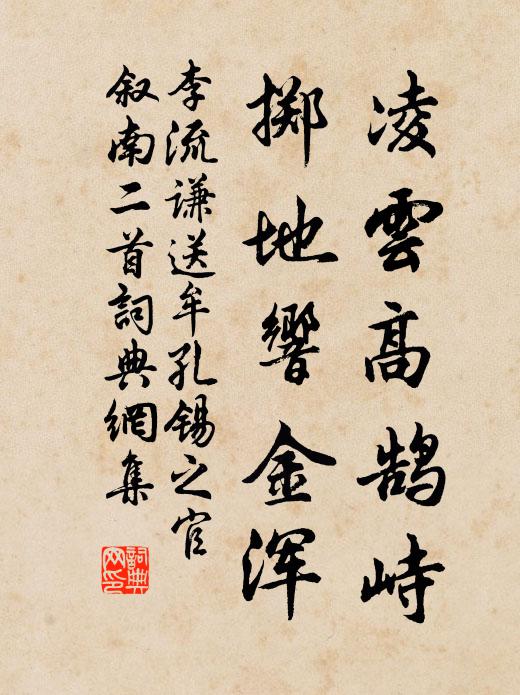 凌雲高鵠峙
掷地響金浑
李流谦送牟孔锡之官
叙南二首詞典網集
詞典网印